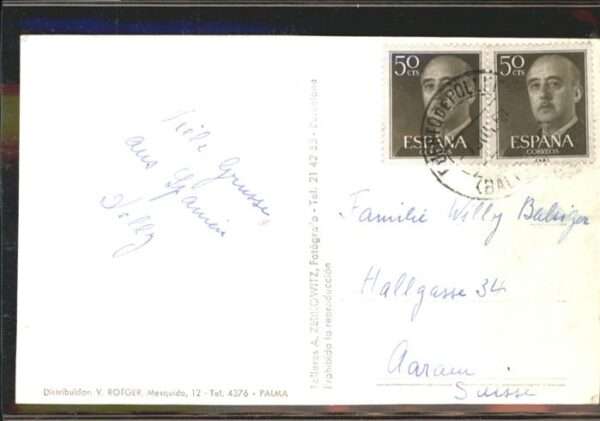 50
CTS
ESPAÑA
CORREOS
50
CTS
ESPAÑA
CORREOS
PUERTO DE POLLENSA
(BALEARES)
Viele Grüsse
aus Spanien
Talleres A. ZERKOWITZ, Fotógrafo - Tel. 21 42 33 - Barcelona
Prohibida la reproducción
Familie Willy Balsiger
Hallgasse 34
Aarau
Suisse
Distribuidor: V. ROTGER, Mesquida, 12 - Tel. 4376 - PALMA